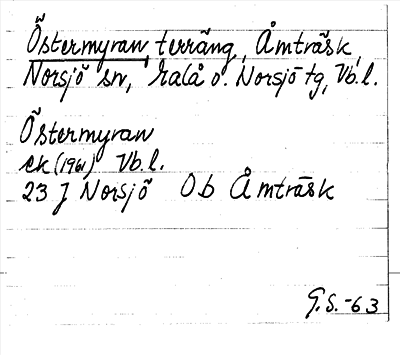 Östermyran, terräng, Åmträsk,
Norsjö sn, Malå o. Norsjö tg, Vb.l.
Östermyran
ek (1961) Vb.l.
23 J Norsjö Ob Åmträsk
G.S. -63